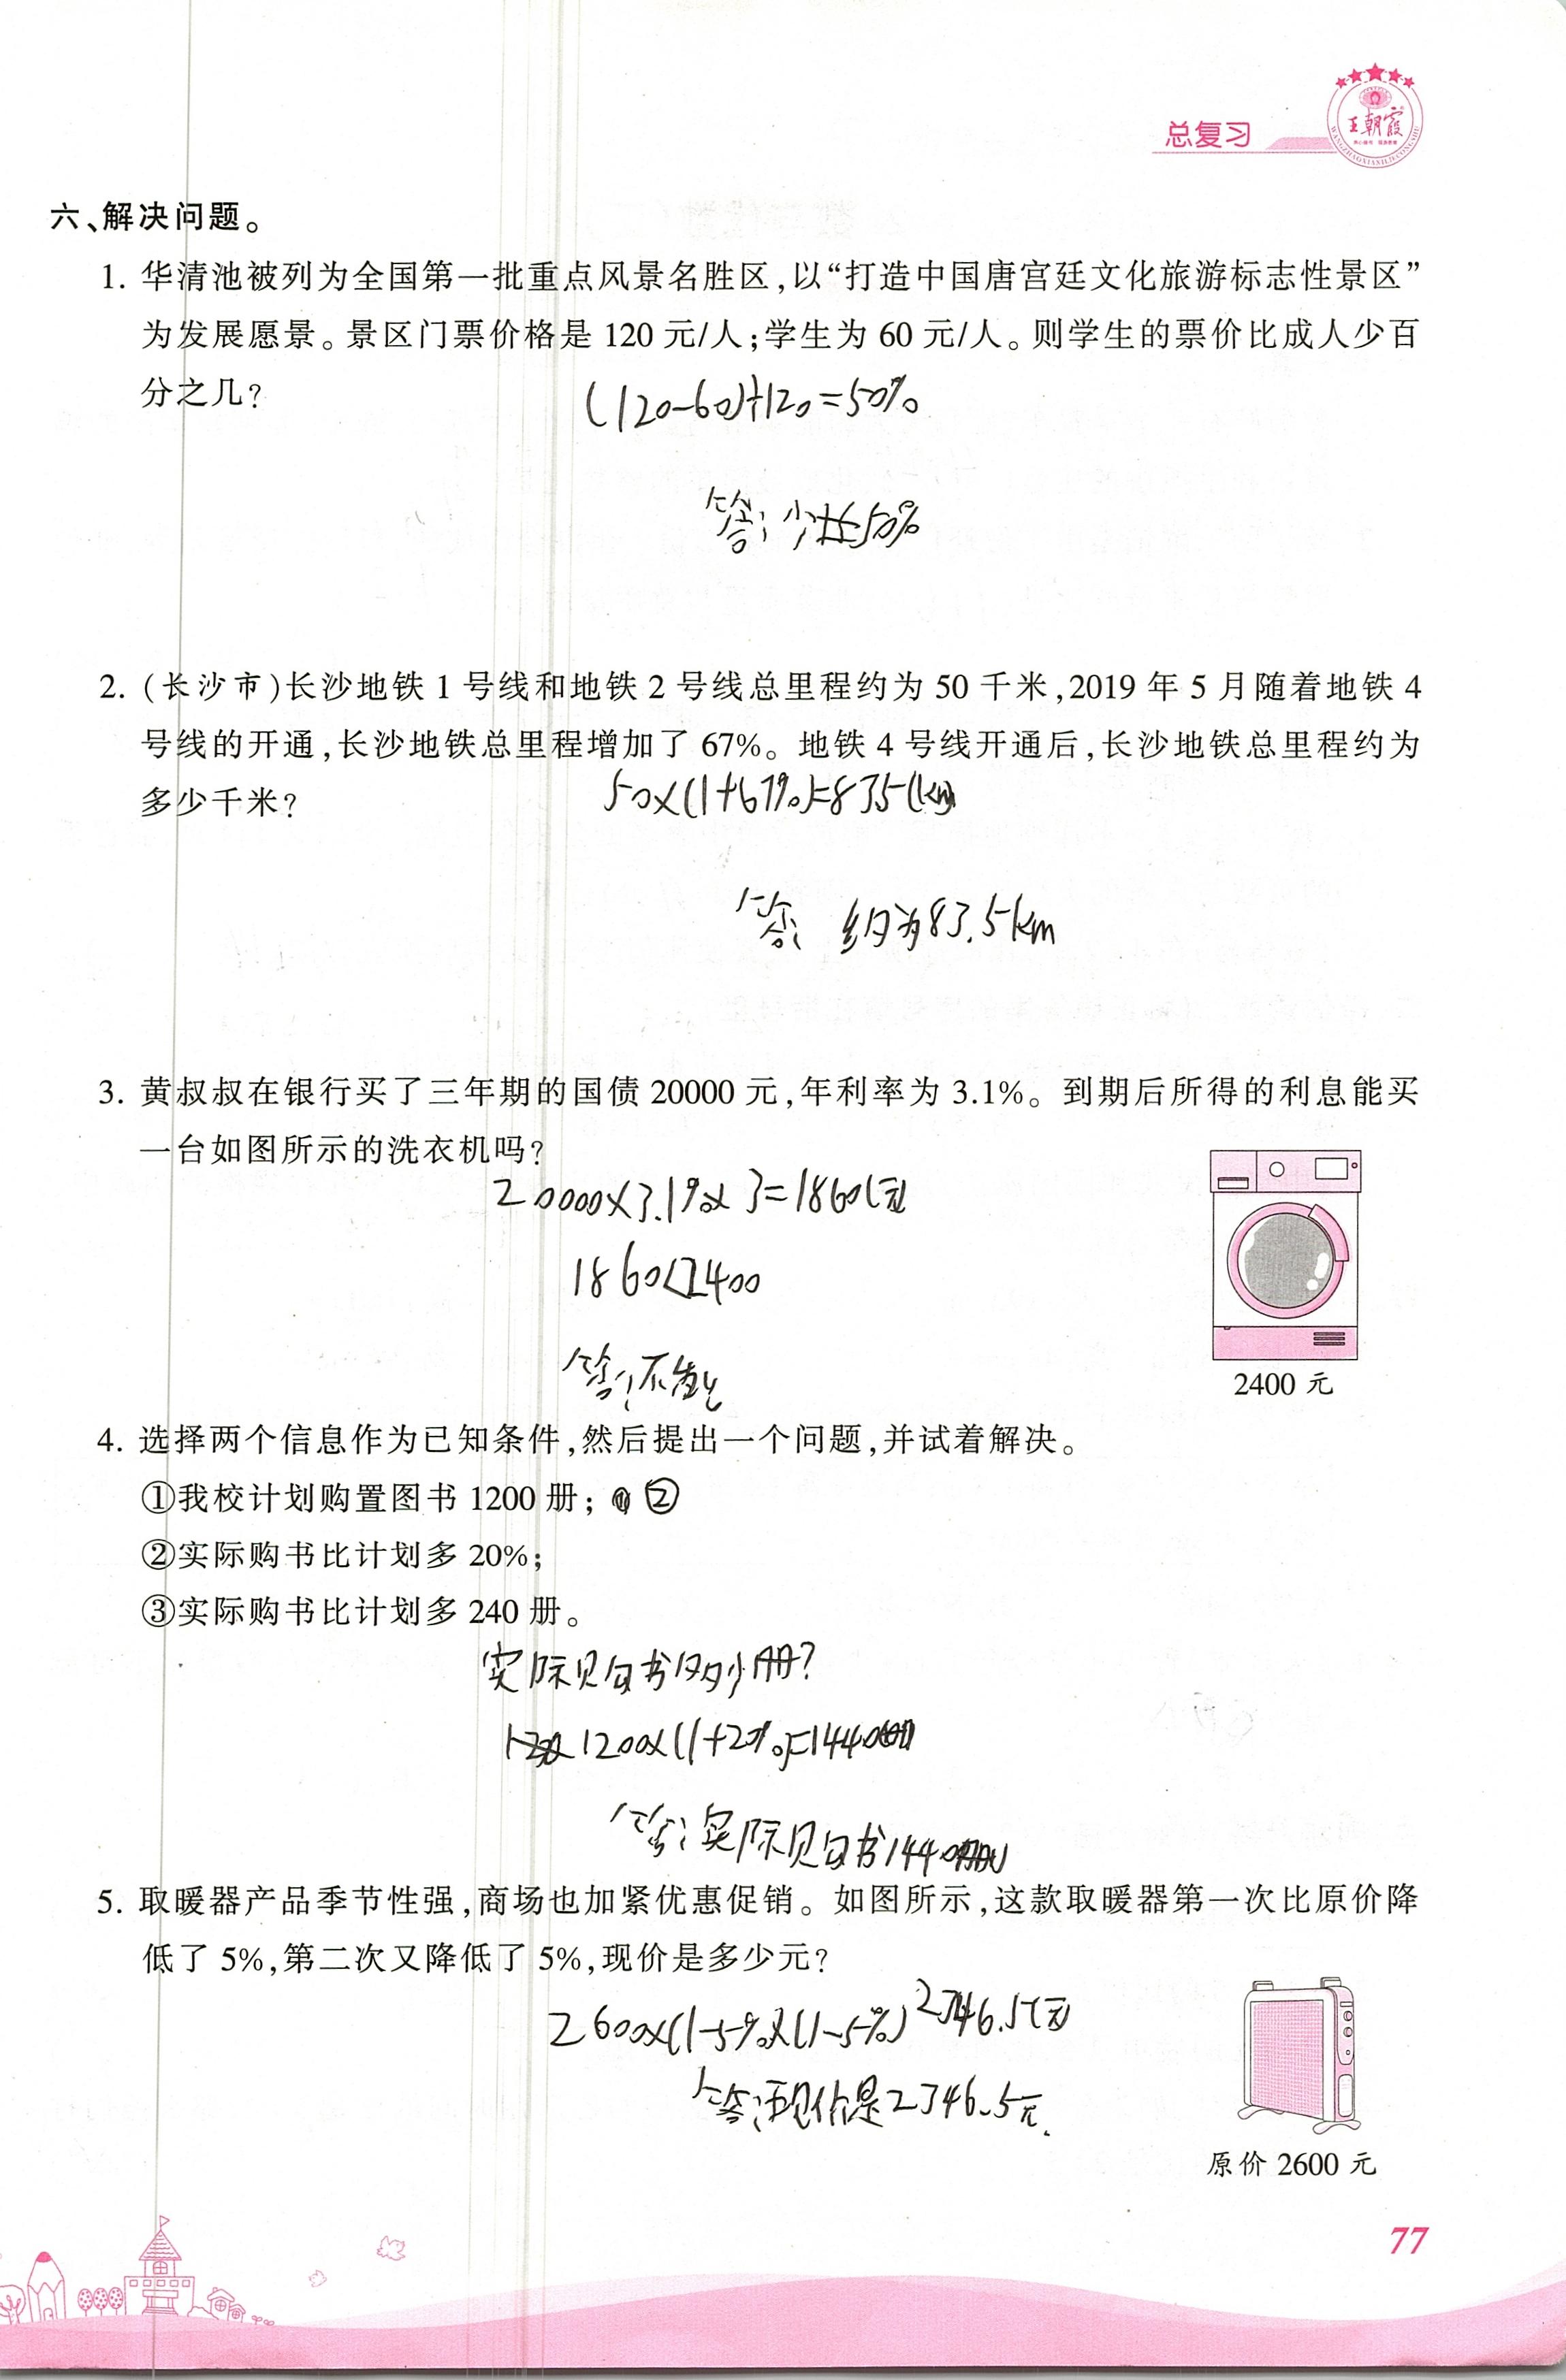 总复习
王朝霞
六、解决问题。
1. 华清池被列为全国第一批重点风景名胜区,以“打造中国唐宫廷文化旅游标志性景区”
为发展愿景。景区门票价格是 120 元/人;学生为 60 元/人。则学生的票价比成人少百
分之几?
(120-60)÷120=50%
答:少50%
2. (长沙市)长沙地铁 1 号线和地铁 2 号线总里程约为 50 千米,2019 年 5 月随着地铁 4
号线的开通,长沙地铁总里程增加了 67%。地铁 4 号线开通后,长沙地铁总里程约为
多少千米?
50×(1+67%)=835(km)
答: 约为83.5km
3. 黄叔叔在银行买了三年期的国债 20000 元,年利率为 3.1%。到期后所得的利息能买
一台如图所示的洗衣机吗?
20000×3.1%×3=1860(元)
1860<2400
答:不能
2400 元
4. 选择两个信息作为已知条件,然后提出一个问题,并试着解决。
①我校计划购置图书 1200 册; ① ②
②实际购书比计划多 20%;
③实际购书比计划多 240 册。
实际购书多少册?
1200×(1+20%)=1440(册)
答:实际购书1440册
5. 取暖器产品季节性强,商场也加紧优惠促销。如图所示,这款取暖器第一次比原价降
低了 5%,第二次又降低了 5%,现价是多少元?
2600×(1-5%)×(1-5%)=2346.5(元)
答:现价是2346.5元.
原价 2600 元
77